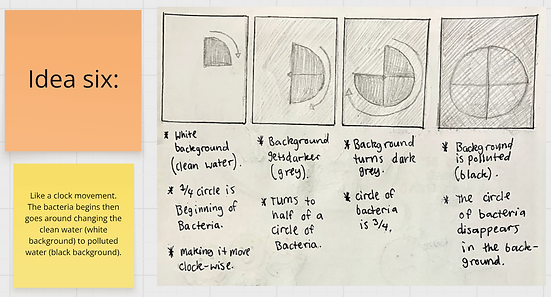 Idea six:
Like a clock movement.
The bacteria begins then
goes around changing the
clean water (white
background) to polluted
water (black background).
* White
background
(clean water).
* 3/4 circle is
Beginning of
Bacteria.
* Making it move
clock-wise.
* Background
gets darker
(grey).
* Turns to
half of a
circle of
Bacteria.
* Background
turns dark
grey.
* circle of
bacteria
is 3/4.
* Background
is polluted
(black).
* The circle
of bacteria
disappears
in the back-
ground.